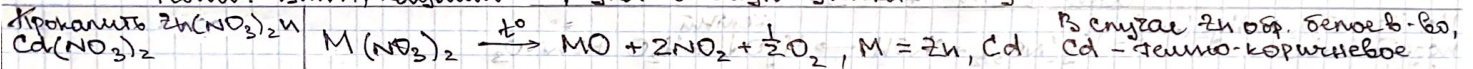 Прокалить Zn(NO₃)₂ и
Cd(NO₃)₂
M(NO₃)₂ —t°→ MO + 2NO₂ + ½O₂, M = Zn, Cd
В случае Zn обр. белое в-во,
Cd – темно-коричневое